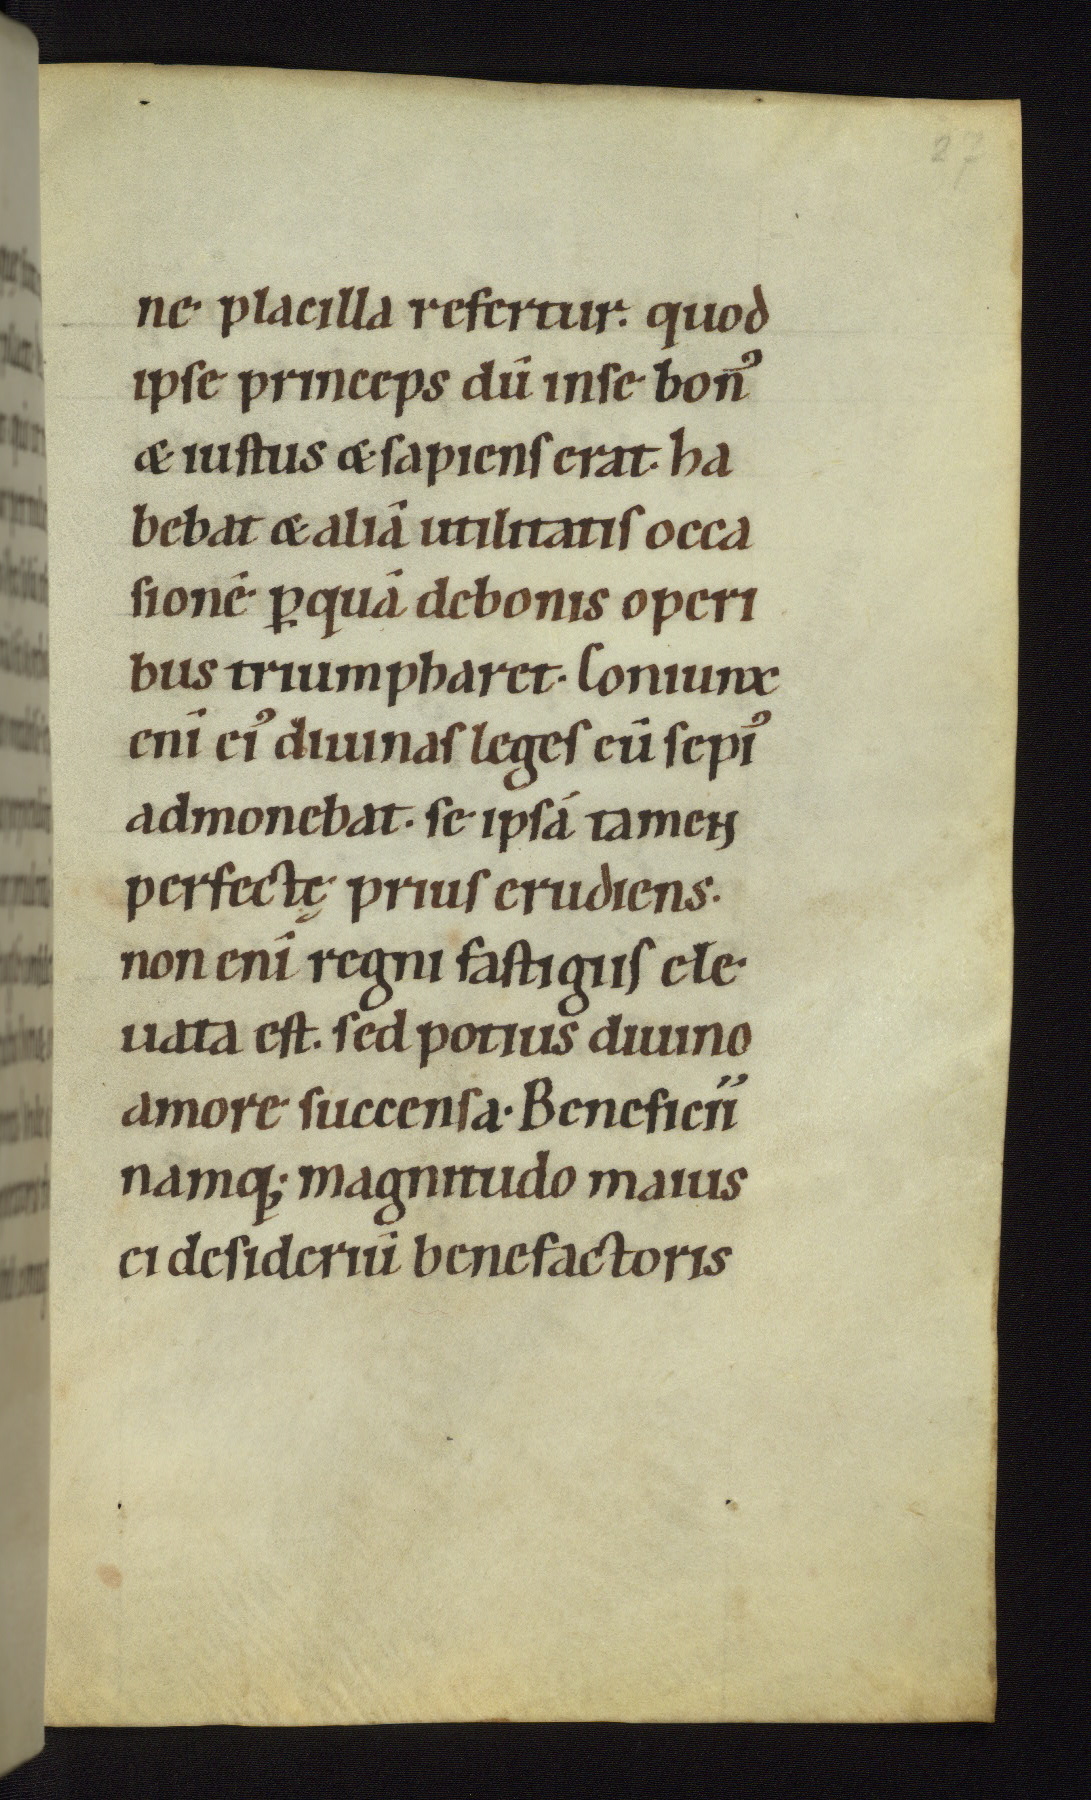 27
ne placilla refertur. quod
ipse princeps dū inse bonꝰ
& iustus & sapiens erat. ha
bebat & aliā utilitatis occa
sionē ꝑquā debonis operi
bus triumpharet. Coniunx
enī eiꝰ diuinas leges eū sepiꝰ
admonebat. se ipsā tamen
perfectę prius erudiens.
non enī regni fastigiis ele
uata est. sed potius diuino
amore succensa. Beneficii
namq; magnitudo maius
ei desideriū benefactoris